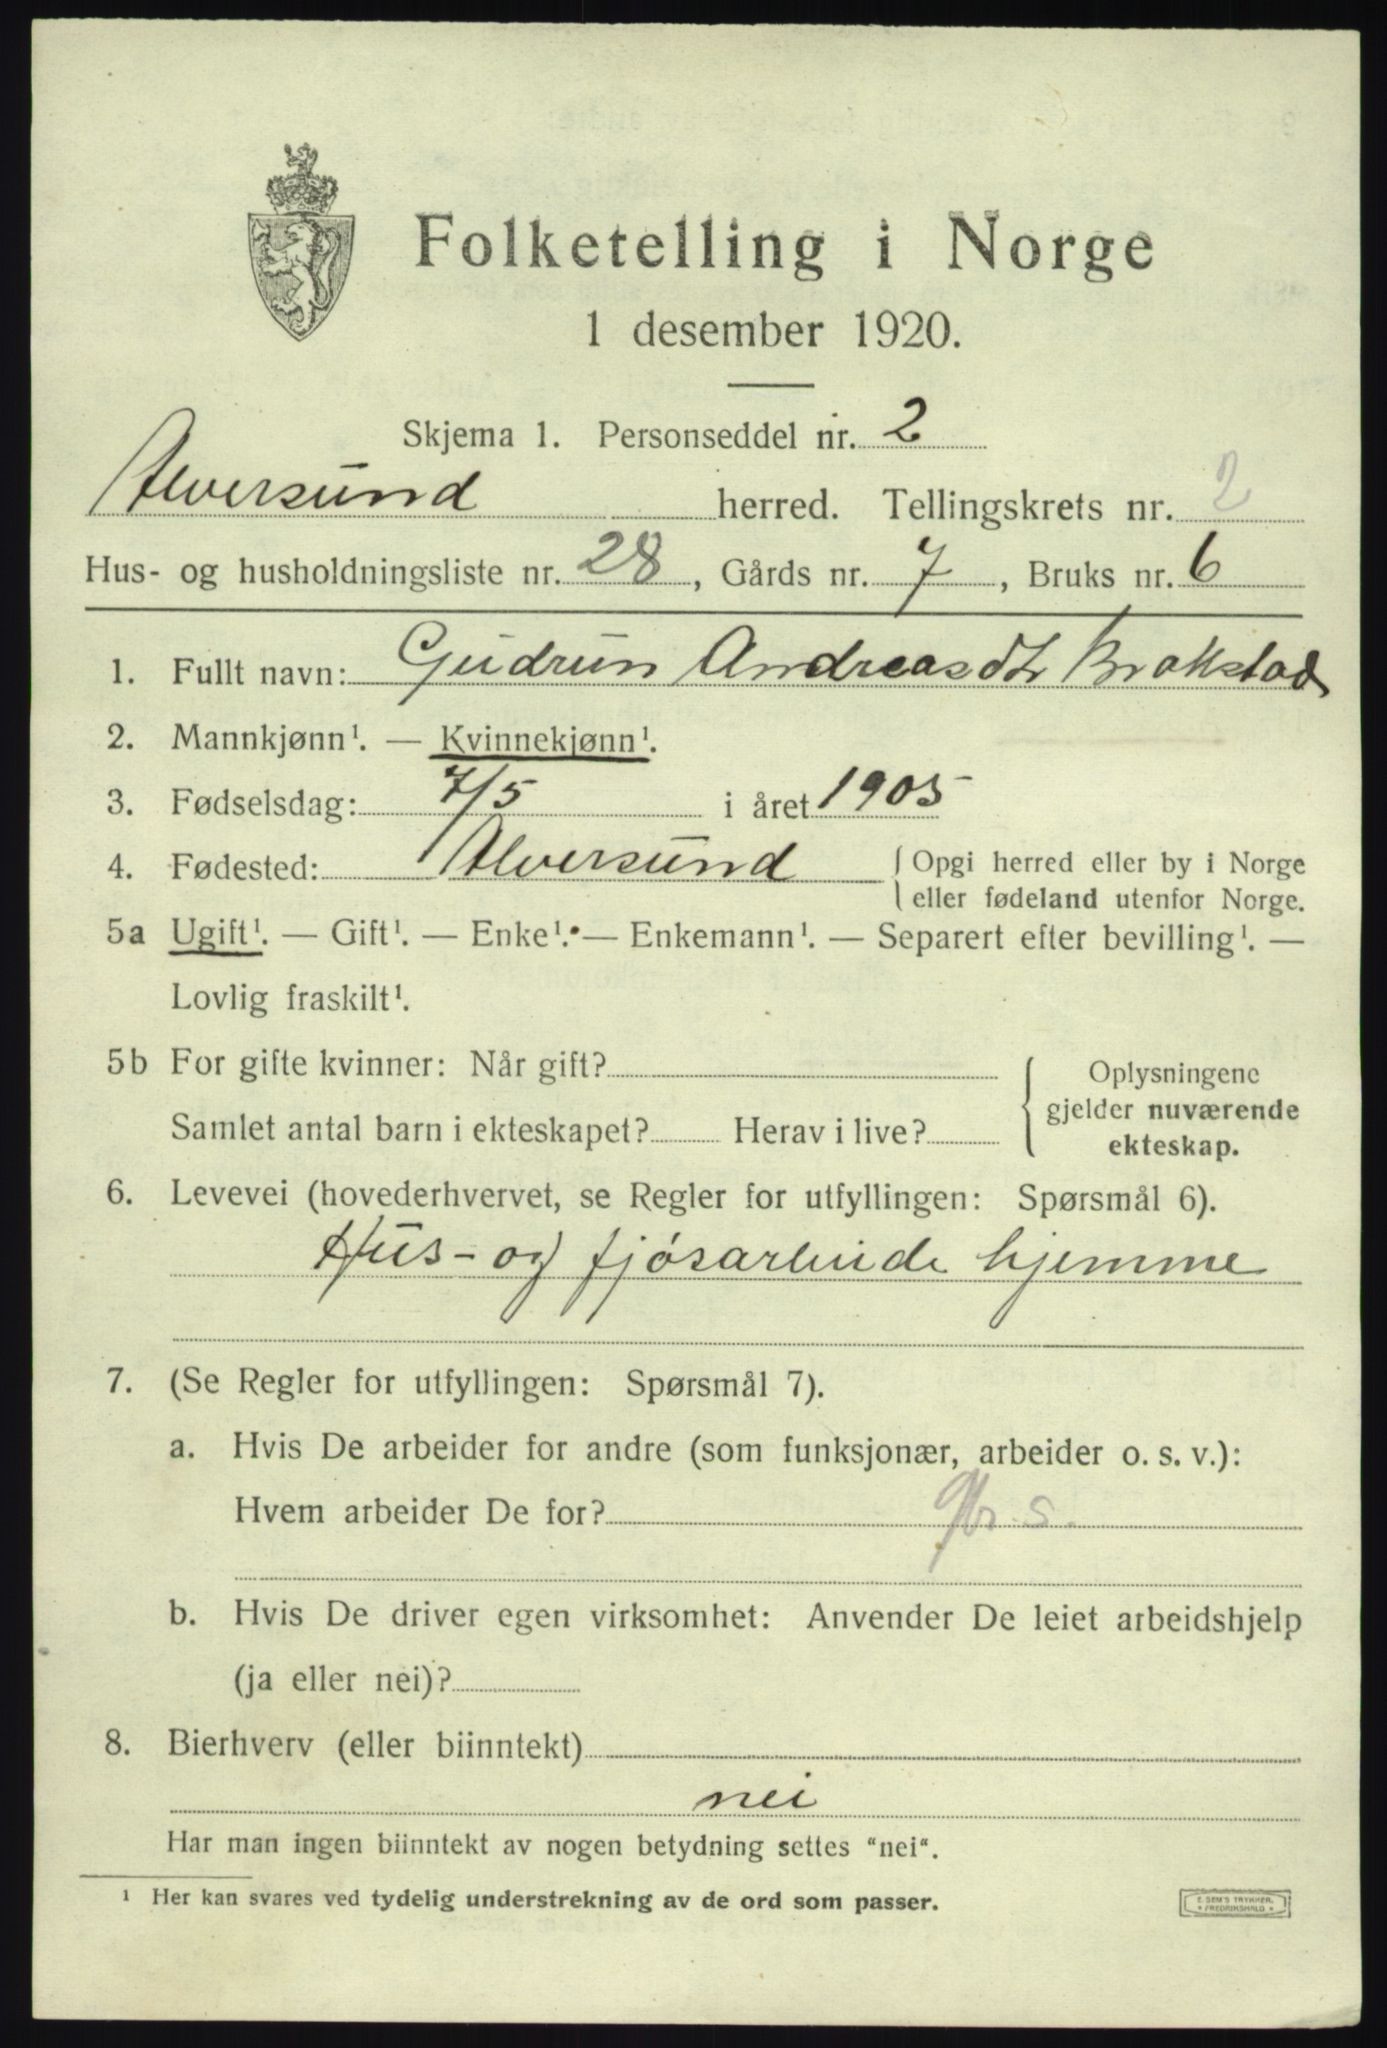 Folketelling i Norge
1 desember 1920.
Skjema 1. Personseddel nr. 2
Alversund herred. Tellingskrets nr. 2
Hus- og husholdningsliste nr. 28, Gårds nr. 7, Bruks nr. 6
1. Fullt navn: Gudrun Andreasdtr Brakstad
2. Mannkjønn¹. — Kvinnekjønn¹.
3. Fødselsdag: 7/5 i året 1905
4. Fødested: Alversund { Opgi herred eller by i Norge
eller fødeland utenfor Norge.
5a Ugift¹. — Gift¹. — Enke¹. — Enkemann¹. — Separert efter bevilling¹. —
Lovlig fraskilt¹.
5b For gifte kvinner: Når gift? { Oplysningene
gjelder nuværende
Samlet antal barn i ekteskapet? Herav i live?
ekteskap.
6. Levevei (hovederhvervet, se Regler for utfyllingen: Spørsmål 6).
Hus- og fjøsarbeide hjemme
7. (Se Regler for utfyllingen: Spørsmål 7).
a. Hvis De arbeider for andre (som funksjonær, arbeider o. s. v.):
Hvem arbeider De for?
b. Hvis De driver egen virksomhet: Anvender De leiet arbeidshjelp
(ja eller nei)?
8. Bierhverv (eller biinntekt)
nei
Har man ingen biinntekt av nogen betydning settes "nei".
¹ Her kan svares ved tydelig understrekning av de ord som passer.
E. SEM'S TRYKKERI,
FREDRIKSHALD